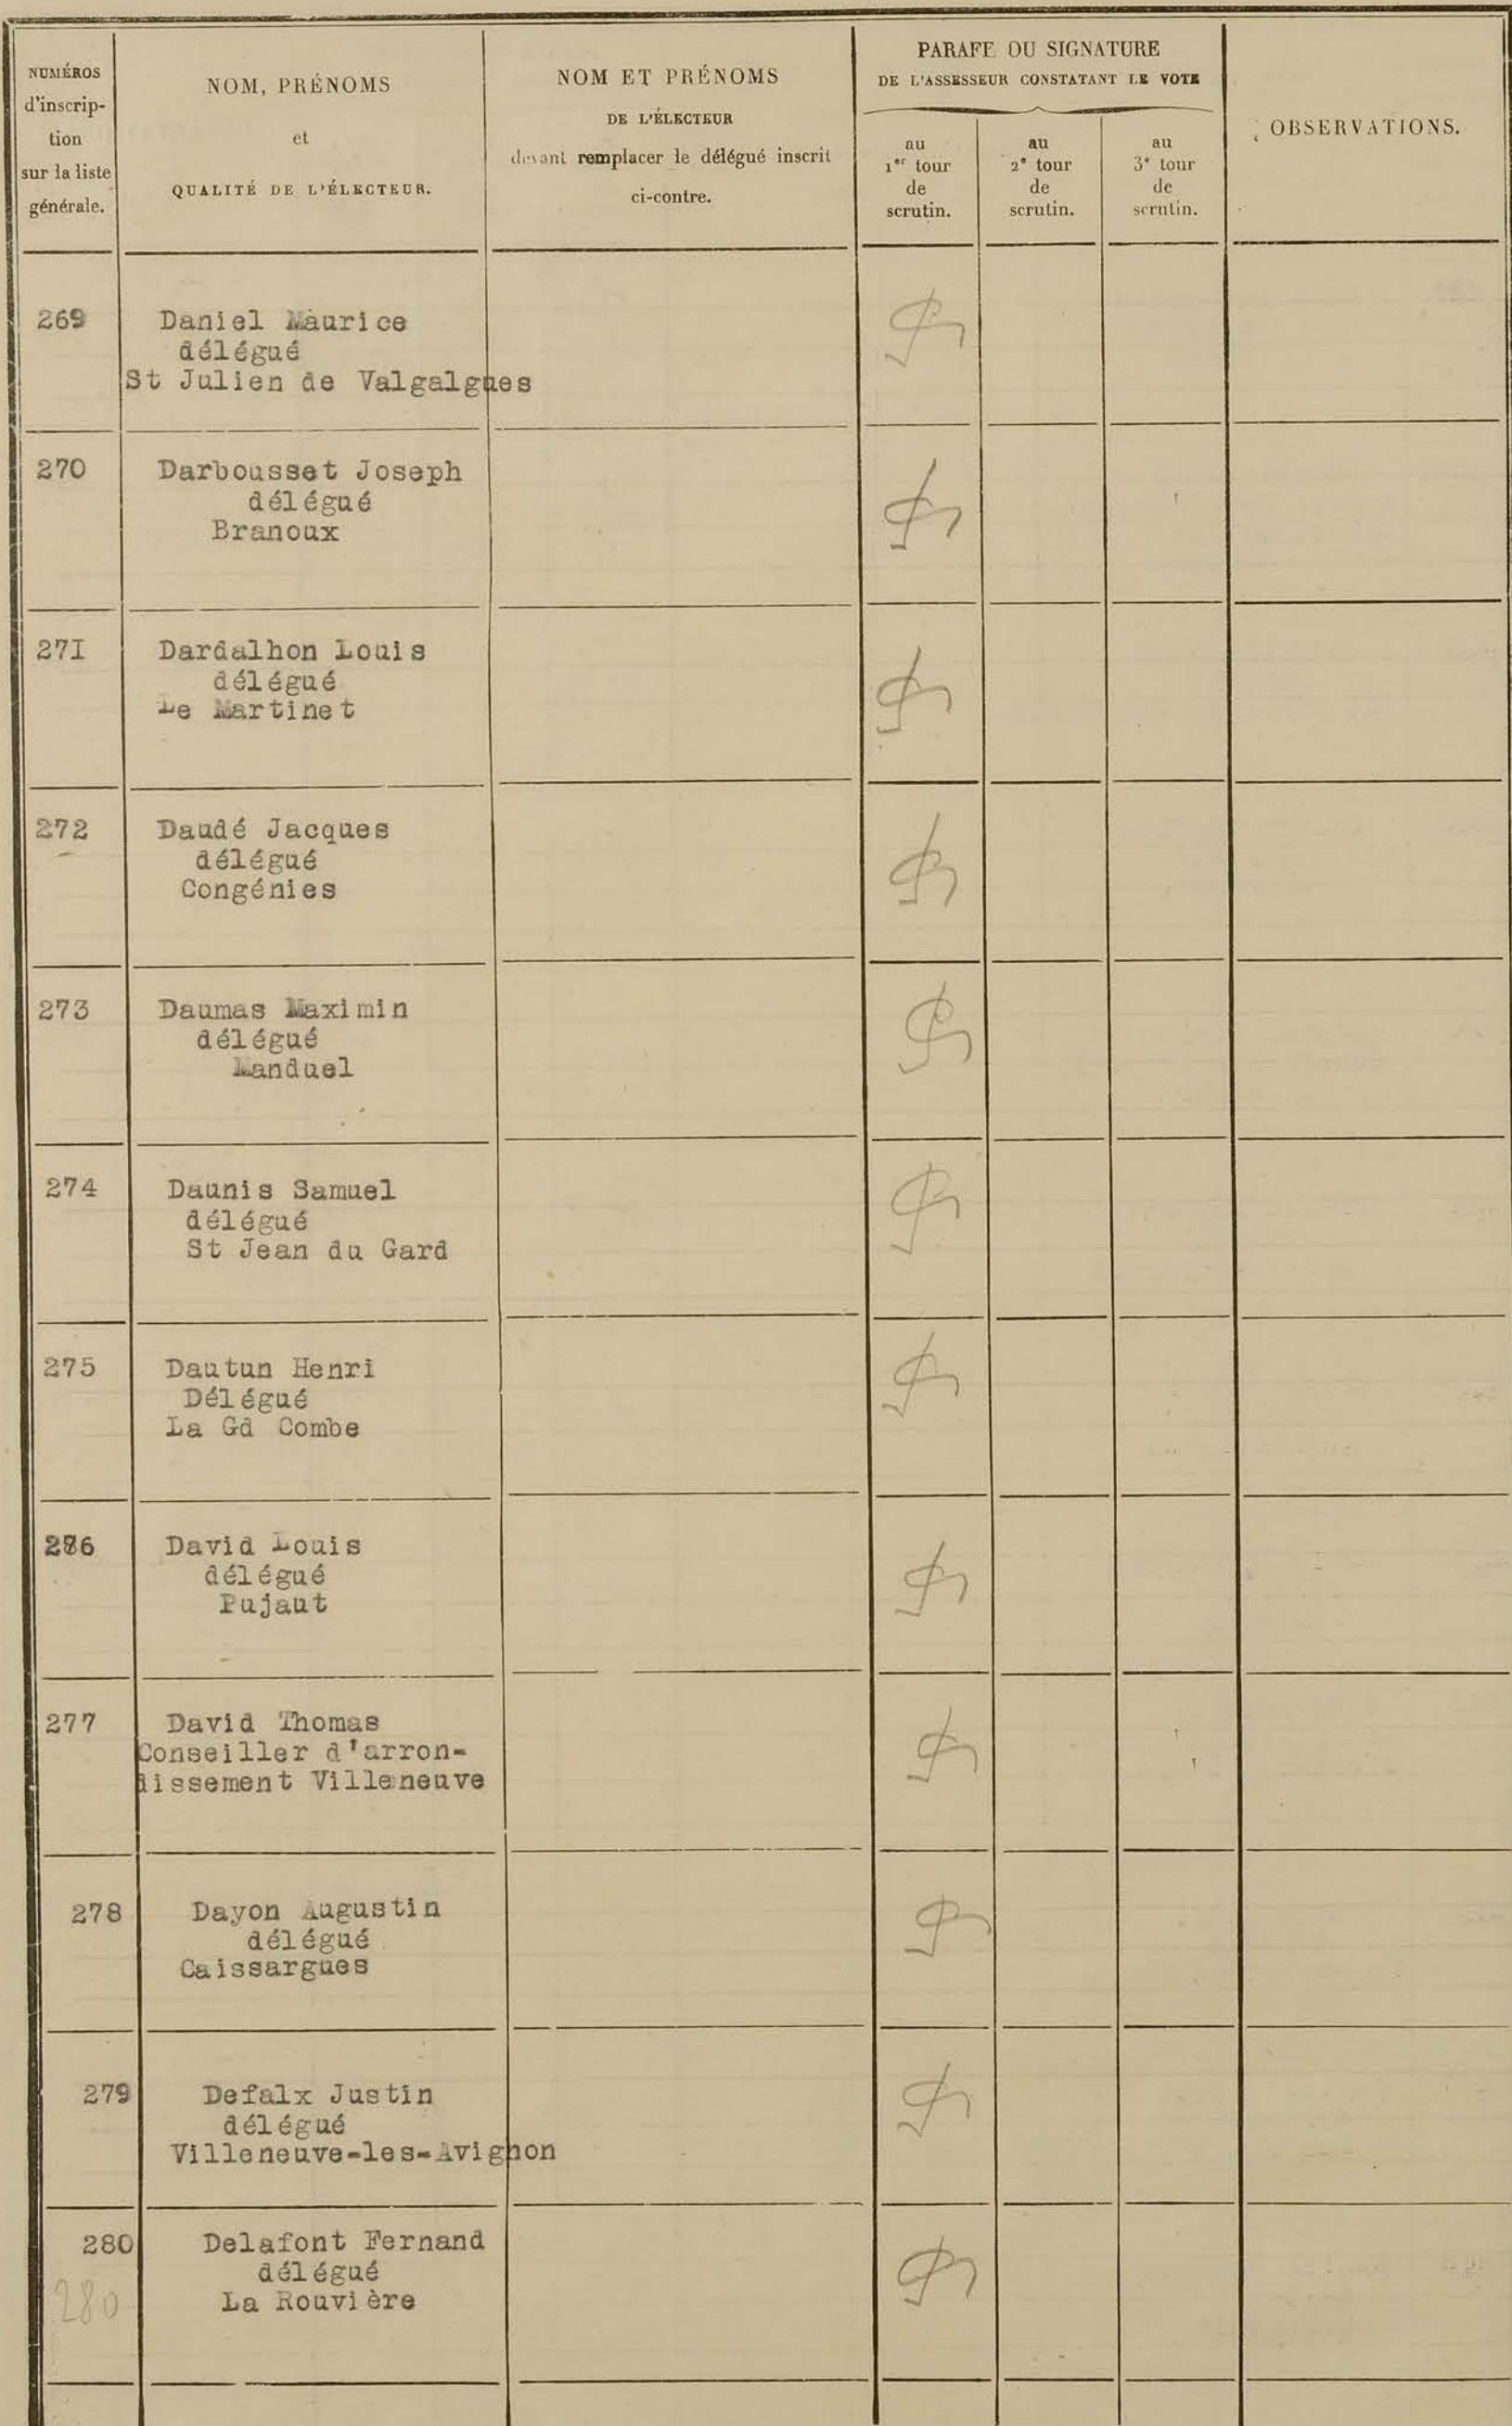 NUMÉROS
d'inscrip-
tion
sur la liste
générale.
NOM, PRÉNOMS
et
QUALITÉ DE L'ÉLECTEUR.
NOM ET PRÉNOMS
DE L'ÉLECTEUR
devant remplacer le délégué inscrit
ci-contre.
PARAFE OU SIGNATURE
DE L'ASSESSEUR CONSTATANT LE VOTE
au
1er tour
de
scrutin.
au
2e tour
de
scrutin.
au
3e tour
de
scrutin.
OBSERVATIONS.
269 Daniel Maurice
délégué
St Julien de Valgalgues
270 Darbousset Joseph
délégué
Branoux
271 Dardalhon Louis
délégué
Le Martinet
272 Daudé Jacques
délégué
Congénies
273 Daumas Maximin
délégué
Manduel
274 Daunis Samuel
délégué
St Jean du Gard
275 Dautun Henri
Délégué
La Gd Combe
David Louis
délégué
Pujaut
277 David Thomas
Conseiller d'arron-
dissement Villeneuve
278 Dayon Augustin
délégué
Caissargues
279 Defalx Justin
délégué
Villeneuve-les-Avignon
280 Delafont Fernand
délégué
280 La Rouvière